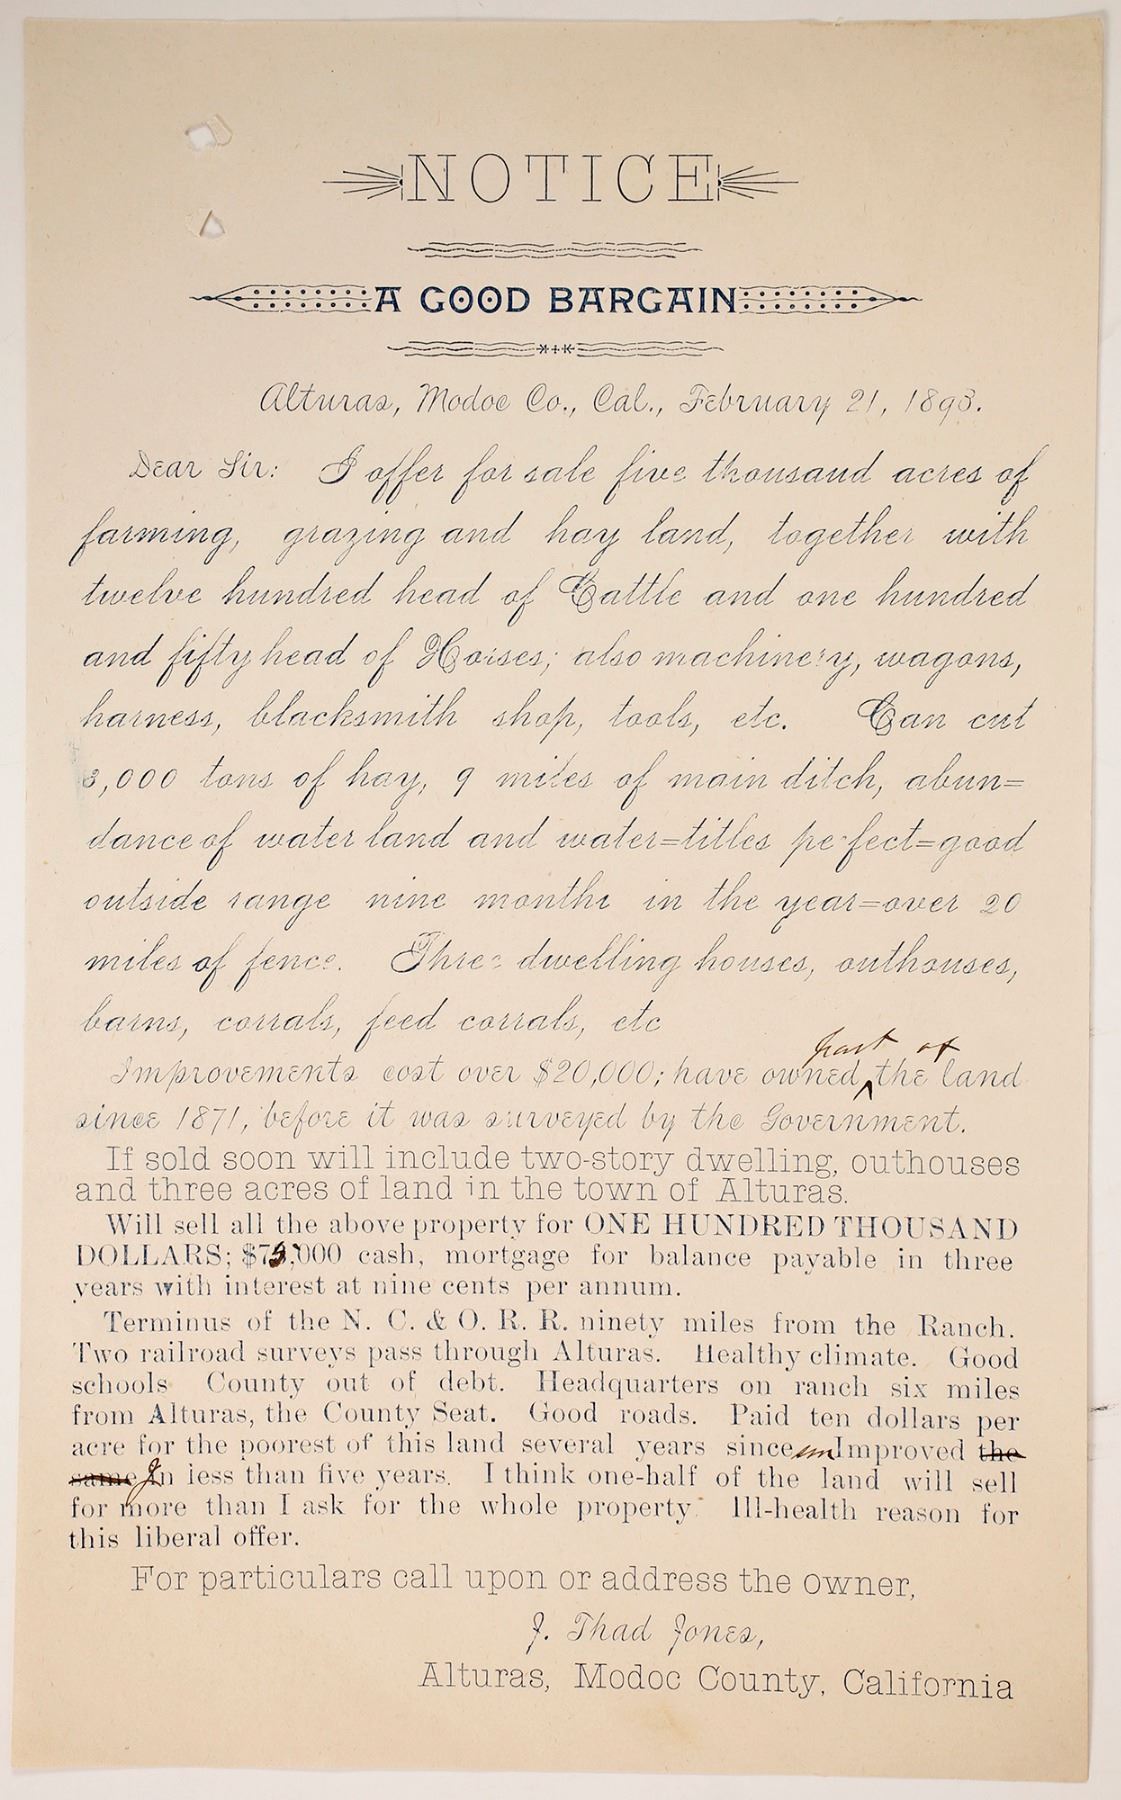 NOTICE
A GOOD BARGAIN
Alturas, Modoc Co., Cal., February 21, 1893.
Dear Sir: I offer for sale five thousand acres of
farming, grazing and hay land, together with
twelve hundred head of Cattle and one hundred
and fifty head of Horses; also machinery, wagons,
harness, blacksmith shop, tools, etc. Can cut
3,000 tons of hay, 9 miles of main ditch, abun=
dance of water land and water=titles perfect=good
outside range nine months in the year=over 20
miles of fence. Three dwelling houses, outhouses,
barns, corrals, feed corrals, etc
part of
Improvements cost over $20,000; have owned ‸ the land
since 1871, before it was surveyed by the Government.
If sold soon will include two-story dwelling, outhouses
and three acres of land in the town of Alturas.
Will sell all the above property for ONE HUNDRED THOUSAND
DOLLARS; $75,000 cash, mortgage for balance payable in three
years with interest at nine cents per annum.
Terminus of the N. C. & O. R. R. ninety miles from the Ranch.
Two railroad surveys pass through Alturas. Healthy climate. Good
schools County out of debt. Headquarters on ranch six miles
from Alturas, the County Seat. Good roads. Paid ten dollars per
acre for the poorest of this land several years since unImproved the
same In less than five years. I think one-half of the land will sell
for more than I ask for the whole property. Ill-health reason for
this liberal offer.
For particulars call upon or address the owner,
J. Thad Jones,
Alturas, Modoc County, California